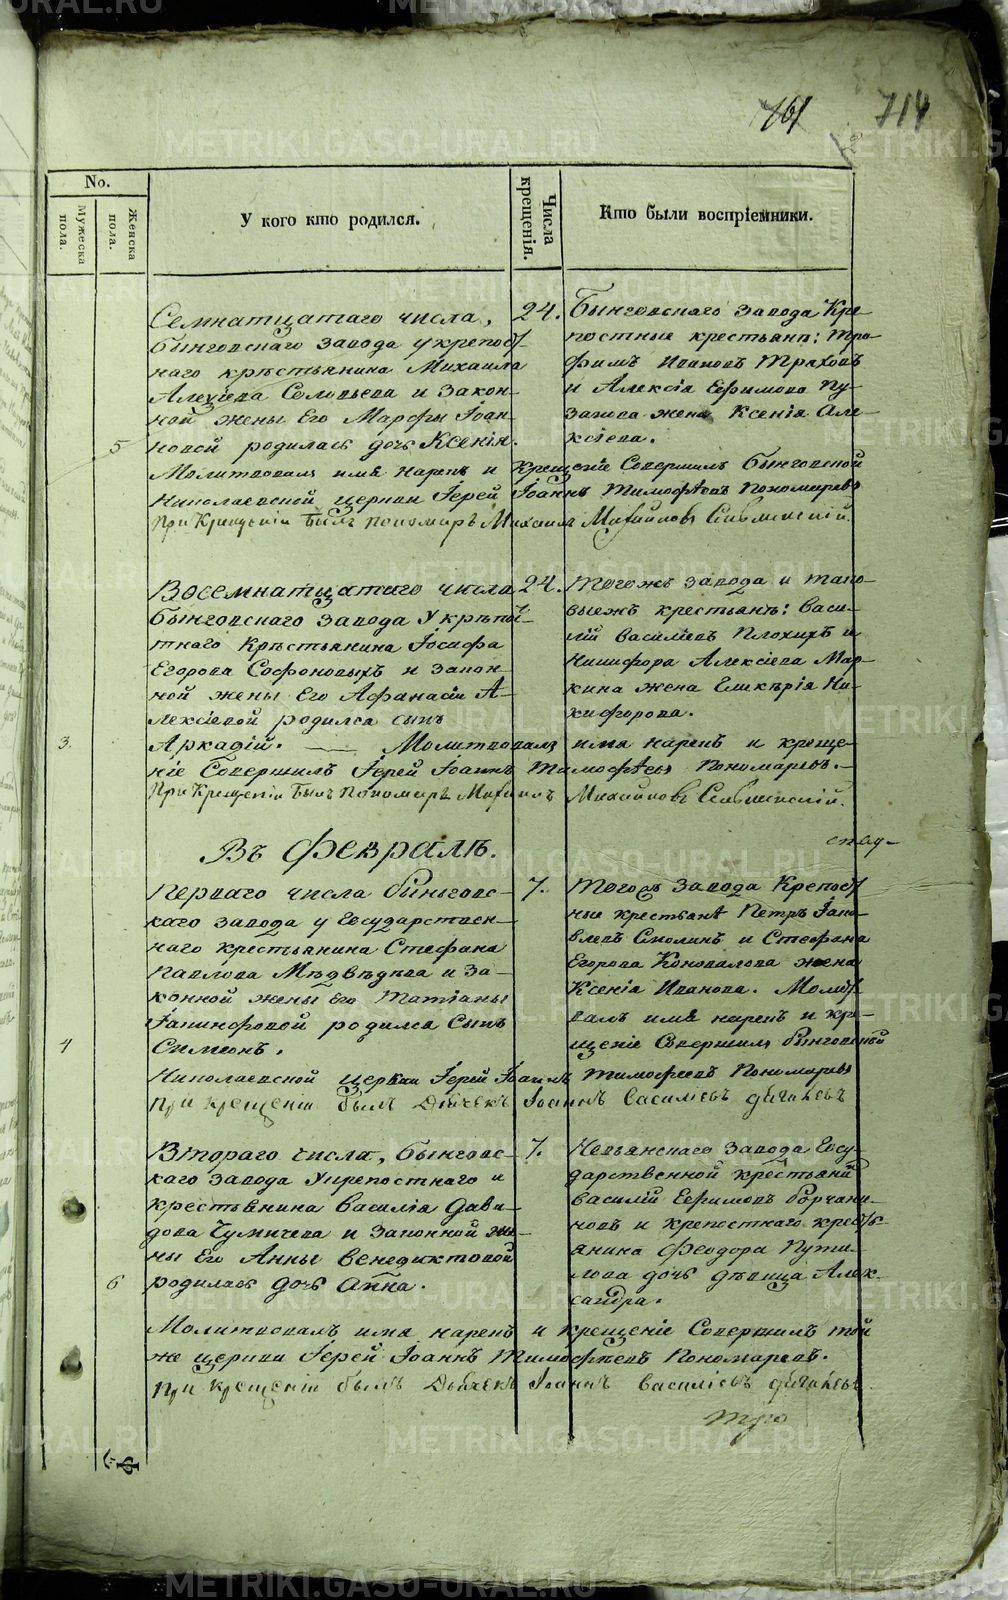 161 714
No.
Мужеска пола.
Женска пола.
У кого кто родился.
Числа крещенія.
Кто были воспріемники.
Семнатцатаго числа,
бынговскаго завода у крепос-
наго крѣстьянина Михаила
Алеѯіева Соловьева и Закон-
ной жены Его Марфы Іоан-
5 новой родилась дочь Ксенія.
24.
Бынговскаго завода Кре-
постные крестьянѣ: Тро-
фимъ Ивановъ Траховъ
и Алексія Ефимова Пу-
занова жена Ксенія Але-
ксіева.
Молитвовалъ имя нарекъ и Крещеніе Совершилъ бынговской
Николаевской церкви Іерей Іоаннъ Тимофѣевъ Пономаревъ
При Крещеніи Былъ пономарь Михаилъ Михайловъ Славнинскій.
Восемнатцатаго числа
бынговскаго завода У крѣпо-
стнаго Крѣстьянина Іосифа
Егорова Софоновыхъ и закон-
ной жены Его Афанасіи А-
лексіевой родился сынъ
3. Аркадій.
24.
Тогожъ завода и тако-
выежъ крестьянъ: Васи-
лій Василіевъ Плохихъ и
Никифора Алексіева Мар-
кина жена Гликѣрія Ни-
кифорова.
Молитвовалъ имя нарекъ и креще-
ніе Совершилъ Іерей Іоаннъ Тимофѣевъ Пономаревъ.
При Крещеніи Былъ Пономарь Михаилъ Михайловъ Славнинскій.
Въ Февралѣ.
Перваго числа быньговс-
каго завода у Государствен-
наго крестьянина Стефана
Павлова Мѣдвѣдева и За-
конной жены Его Татіаны
Іакинфовой родился Сынъ
4 Симеонъ.
7.
Тогожъ завода Крепост-
ные крестьянѣ Петръ Іако-
влевъ Смолинъ и Стефана
Егорова Коновалова жена
Ксенія Иванова. Молит-
валъ имя нарекъ и кр-
щеніе Совершилъ бынговской
Николаевской церкви Іерей Іоаннъ Тимофеевъ Пономаревъ
При крещеніи былъ Дьячекъ Іоаннъ Василіевъ
Втораго числа, бынговс-
каго завода Укрепостнаго и
крестьянина Василія Дави-
дова Чумичева и Законной же-
ны Его Анны Венедиктовой
6 родилась дочь Анна.
7.
Невьянскаго завода Госу-
дарственной крестьянинъ
Василій Ефимовъ борчани-
новъ и крепостнаго кресть-
янина Феодора Пути-
лова дочь дѣвица Алек-
сандра.
Молитвовалъ имя нарекъ и крещеніе Совершилъ той
же церкви Іерей Іоаннъ Тимофѣевъ Пономаревъ.
При крещеніи былъ Дьячекъ Іоаннъ Василіевъ
METRIKI.GASO-URAL.RU